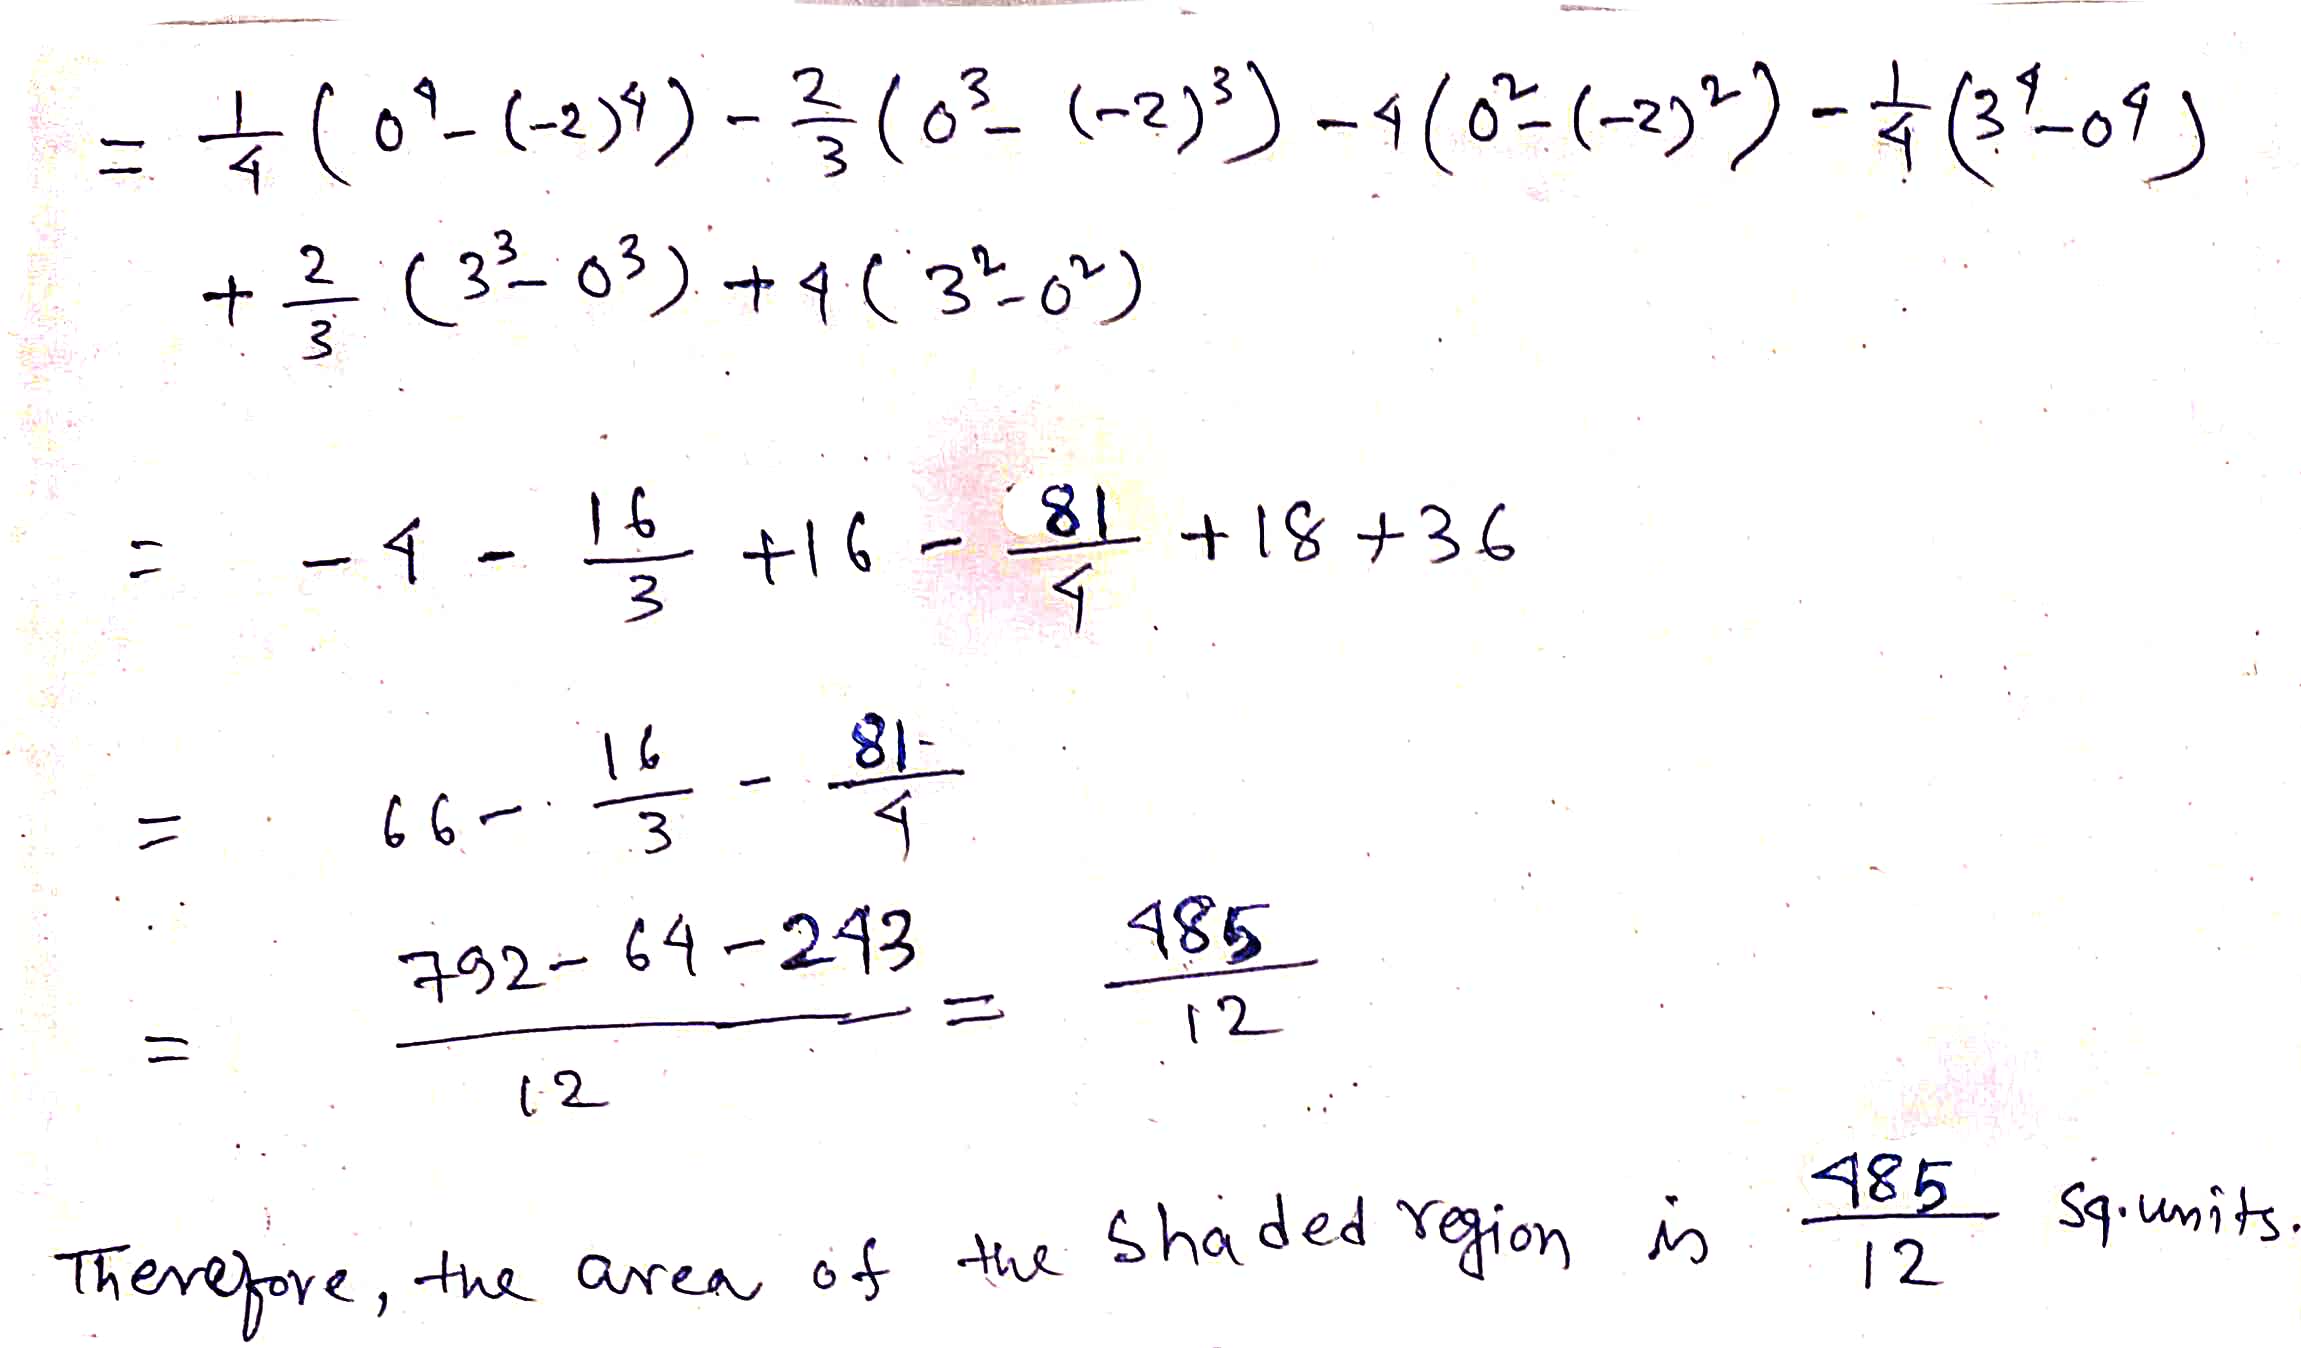 = 1/4 (0⁴ - (-2)⁴) - 2/3 (0³ - (-2)³) - 4(0² - (-2)²) - 1/4 (3⁴ - 0⁴)
+ 2/3 (3³ - 0³) + 4(3² - 0²)
= -4 - 16/3 + 16 - 81/4 + 18 + 36
= 66 - 16/3 - 81/4
= (792 - 64 - 243)/12 = 485/12
Therefore, the area of the shaded region is 485/12 sq. units.